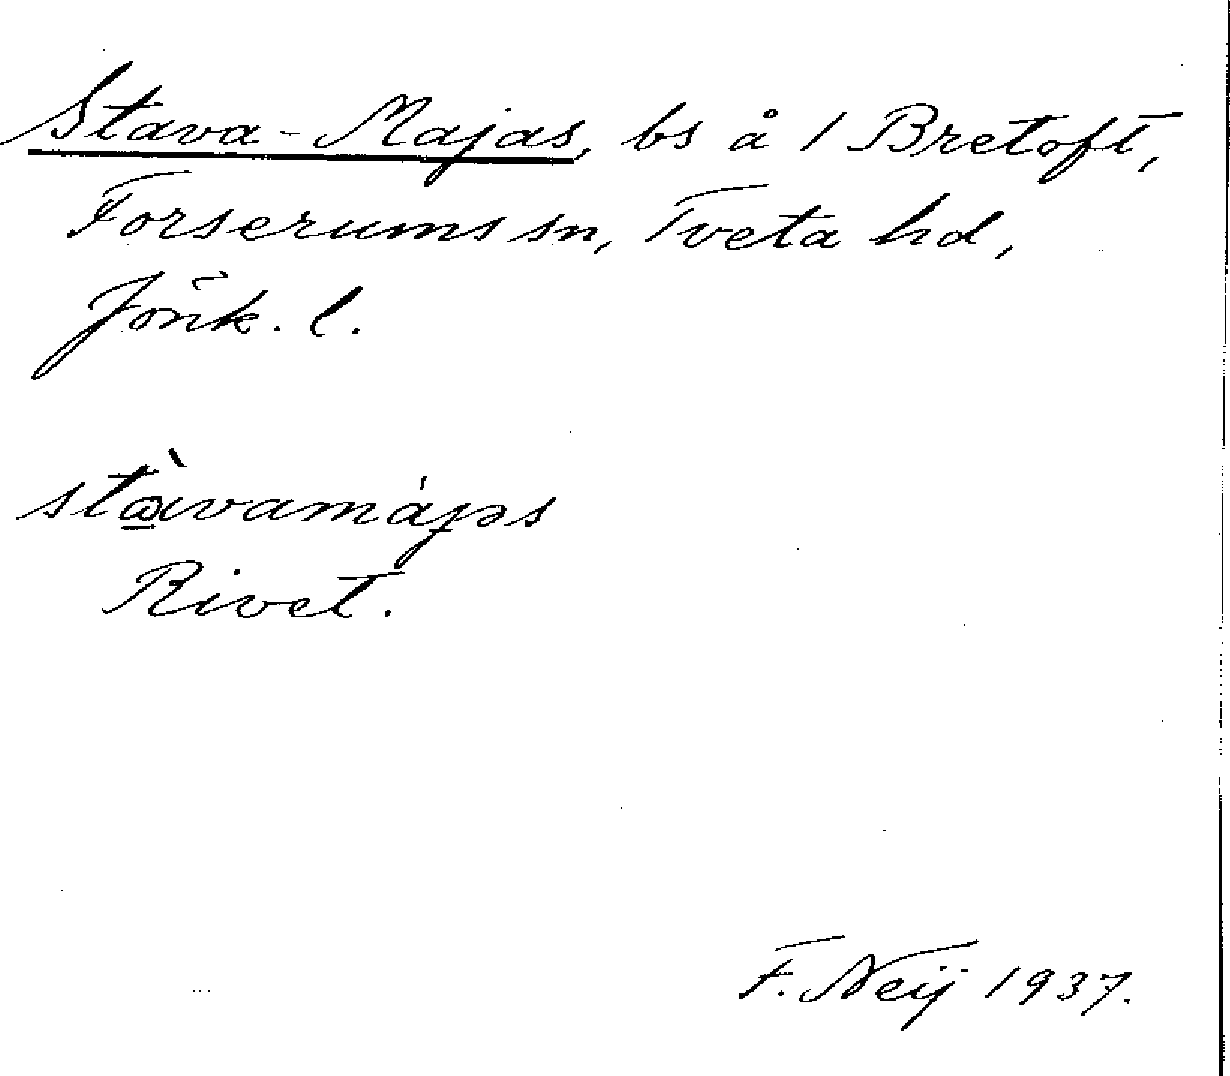 Stava-Majas, bs å 1 Bretoft,
Forserums sn, Tveta hd,
Jönk. l.
stàvamájəs
Rivet.
F. Neij 1937.